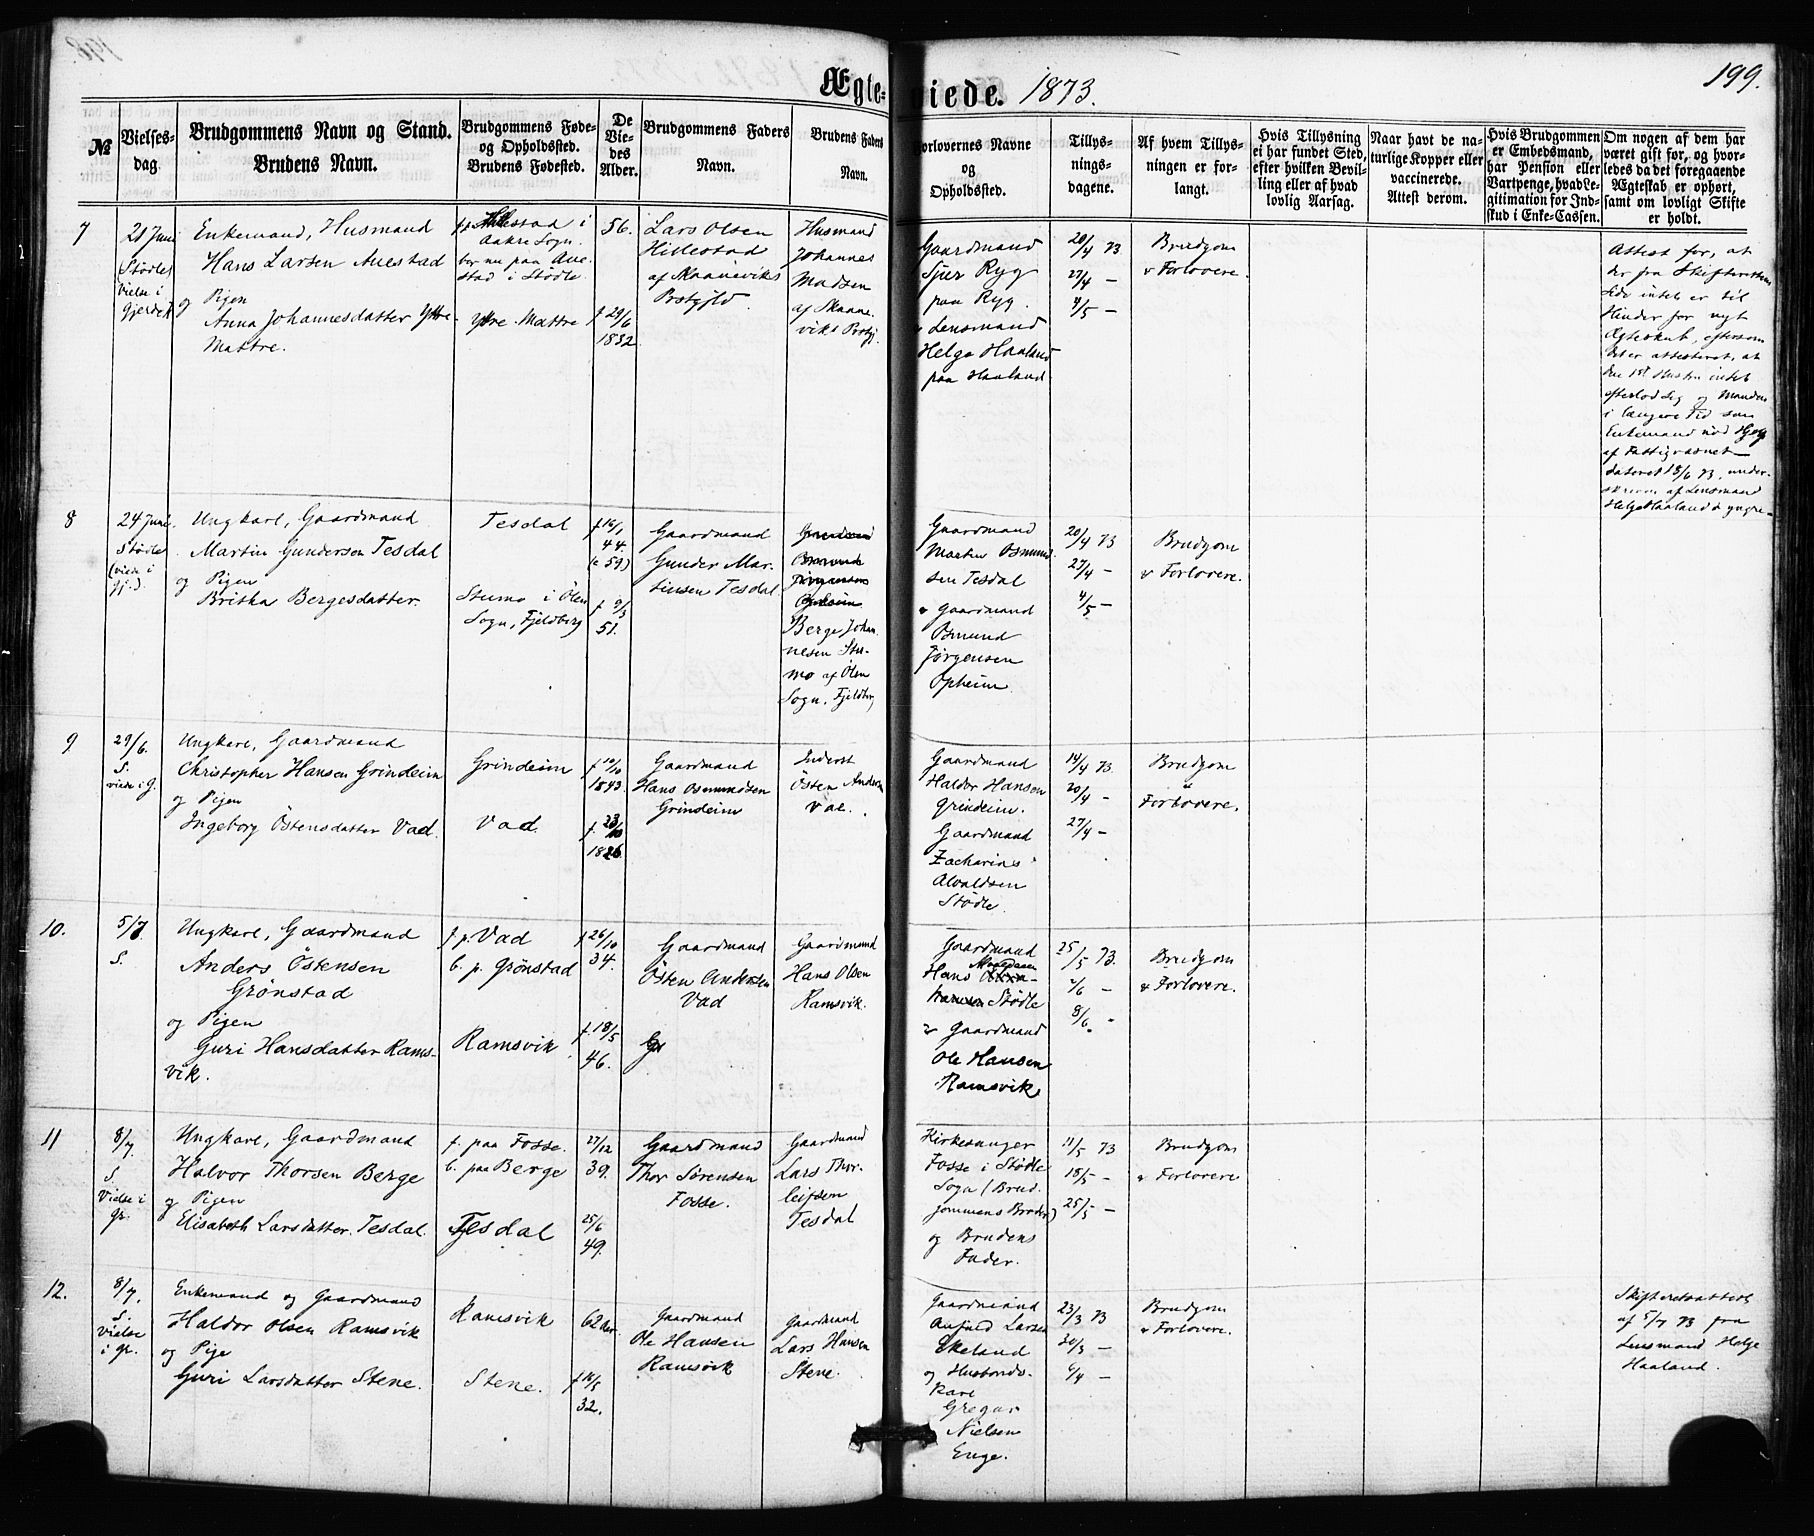 199.
Ægte-viede. 1873.
№
Vielses-
dag.
Brudgommens Navn og Stand.
Brudens Navn.
Brudgommens Føde-
og Opholdssted.
Brudens Fødested.
De
Vie-
des
Alder.
Brudgommens Faders
Navn.
Brudens Faders
Navn.
Forlovernes Navne
og
Opholdssted.
Tillys-
nings-
dagene.
Af hvem Tillys-
ningen er for-
langt.
Hvis Tillysning
ei har fundet Sted,
efter hvilken Bevil-
ling eller af hvad
lovlig Aarsag.
Naar havt de na-
turlige Kopper eller
vaccinerede.
Attest derom.
Hvis Brudgommen
er Embedsmand,
har Pension eller
Vartpenge, hvad Le-
gitimation for Ind-
skud i Enke-Cassen.
Om nogen af dem har
været gift før, og hvor-
ledes da det foregaaende
Ægteskab er ophørt,
samt om lovligt Skifte
er holdt.
7
21 Juni
Stødle
Vielse i
Gjerdek
Enkemand, Husmand
Hans Larsen Auestad
og Pigen
Anna Johannesdatter Yttre-
Mattre.
Hillestad i
Aakre Sogn.
bor nu paa Aue-
stad i Stødle
Yttre-Mattre
56.
f 29/6
1832
Lars Olsen
Hillestad
af Skaaneviks
Prstgjld
Husmand
Johannes
Madsen
af Skaane-
viks Prstgj.
Gaardmand
Sjur Ryg
paa Ryg.
Lensmand
Helge Haaland
paa Haaland
20/4 73
27/4 —
4/5 —
Brudgom
& Forlovere.
Attest for, at
der fra Skifterettens
Side intet er til
Hinder for nyt
Ægteskab, eftersom
det er attesteret, at
den 1ste Hustru intet
efterlod sig og Manden
i længere Tid som
Enkemand nød Hjælp
af Fattigvæsnet —
dateret 18/6 73, under-
skreven af Lensmand
Helge Haaland d yngre —
8
24 Juni
Stødle
(viede i
Gj.)
Ungkarl, Gaardmand
Martin Gundersen Tesdal
og Pigen
Britha Bergesdatter
Tesdal
Stumo i Ølen
Sogn, Fjeldberg
f 16/1
44.
(c 59)
f 9/3
51.
Gaardmand
Gunder Mar-
tinsen Tesdal
Berge Johan-
nesen Stu-
mo af Ølen
Sogn, Fjeldberg
Gaardmand
Morten Osmund-
sen Tesdal
& Gaardmand
Osmund
Jørgensen
Opheim
20/4 73
27/4 —
4/5 —
Brudgom
& Forlovere.
9
29/6.
S.
viede i G.
Ungkarl, Gaardmand
Christopher Hansen Grindeim
og Pigen
Ingeborg Østensdatter Vad.
Grindeim
Vad.
f 10/10
1843.
f 23/10
1826.
Gaardmand
Hans Osmundsen
Grindeim
Inderst
Østen Anders
Vae.
Gaardmand
Haldor Hansen
Grindeim.
Gaardmand
Zacharias
Alvaldsen
Stødle.
14/4 73.
20/4 —
27/4 —
Brudgom
&
Forlovere.
10.
5/7.
S.
Ungkarl, Gaardmand
Anders Østensen
Grønstad
og Pigen
Guri Hansdatter Rams-
vik.
f. p. Vad
b. p. Grønstad
Ramsvik
f 26/10
34.
f. 18/5
46.
Gaardmand
Østen Andersen
Vad
Gaardmand
Hans Olsen
Ramsvik.
Gaardmand
Hans
Stødle
& Gaardmand
Ole Hansen
Ramsvik
25/5 73.
2/6 —
8/6 -
Brudgom
& Forlovere.
11
8/7.
S.
Vielse i
Gr.
Ungkarl, Gaardmand
Halvor Thorsen Berge
og Pigen
Elisabeth Larsdatter Tesdal.
f. paa Fosse.
b. paa Berge
Tesdal
27/12
39.
25/6
49.
Gaardmand
Thor Sørensen
Fosse.
Gaardmand
Lars Thor-
leifsen
Tesdal
Kirkesanger
Fosse i Stødle
Sogn (Brud-
gommens Broder)
og Brudens
Fader.
11/5 73
18/5 —
25/5 —
Brudgom
& Forlovere
12.
8/7.
S.
Vielse
i Gr.
Enkemand og Gaardmand
Haldor Olsen Ramsvik
og Pige
Guri Larsdatter Stene.
Ramsvik
Stene.
62 Aar.
f 16/5
32.
Gaardmand
Ole Hansen
Ramsvik
Gaardmand
Lars Hansen
Stene.
Gaardmand
Anfind Larsen
Ekeland
og Husbonds-
karl
Gregar
Nielsen
Enge.
23/3 73
30/3 —
6/4 —
Brudgom
& Forlovere.
Skifteretsattest
af 5/7 73 fra
Lensmand Helge
Haaland.